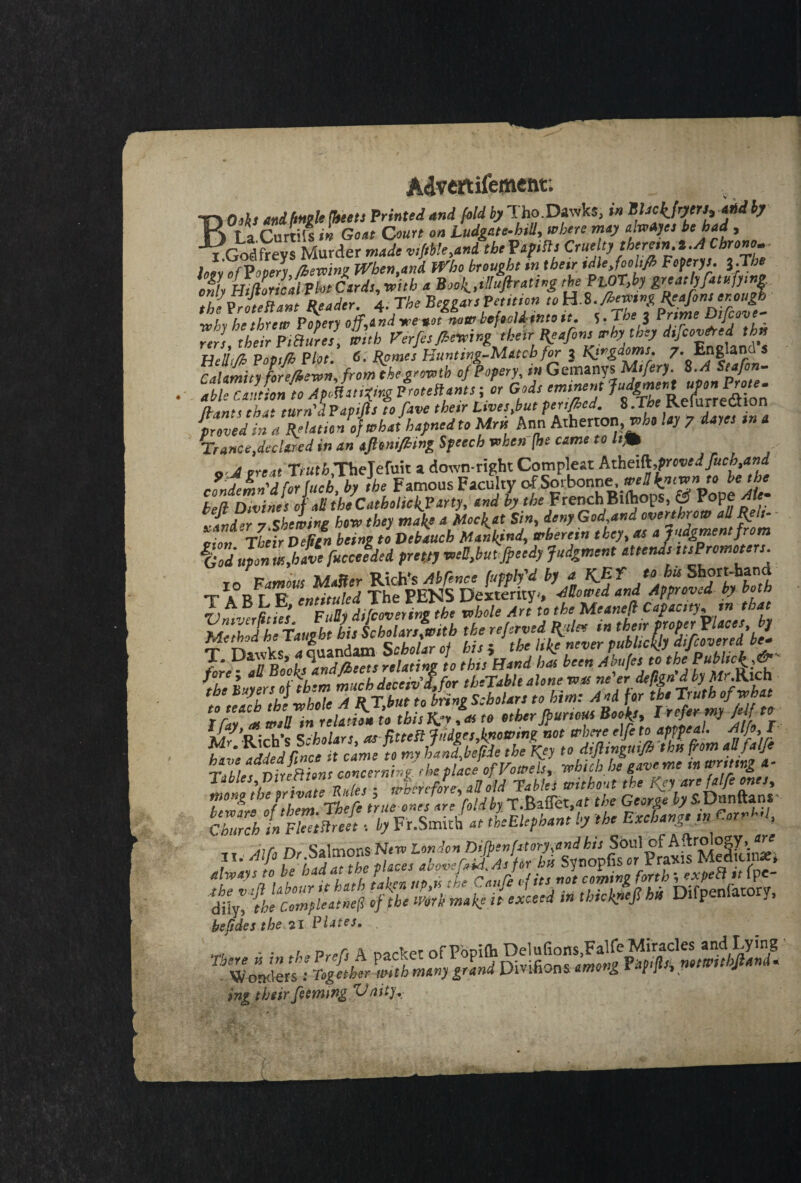 Advertisement:
BOoks and single sheets Printed and sold by Tho.Dawks, in Blackfryers, and by
La Curtiss in Goat Court on Ludgate-hill, where may alwayes be had,
1.Godfreys Murder made visible,and the Papists Cruelty therein.2.A Chrono-
logy of Popery, shewing When,and Who brought in their idle,foolish Foperys. 3.The
only Historical Plot Cards, with a Book,illustrating the PLOT,by greatly satisfying
the Protestant Reader. 4. The Beggars Petition to H.8.shewing Reasons enough
why he threw Popery off,and we not now befool'd into it. 5.The 3 Prime Discove-
rers, their Pictures, with Verses shewing their Reasons why they discovered this
Hellish Popish Plot. 6. Romes Hunting-Match for 3 Kingdoms. 7. England's
Calamity foreshewn, from the growth of Popery, in Gemanys Misery. 8.A Seafon-
able Caution to Apostatizing Protestants; or Gods eminent Judgment upon Prote-
stants that turn'd Papists to save their Lives,but perished. 8.The Resurrection
proved in a Relation of what hapned to Mris Ann Atherton, who lay 7 dayes in a
Trance,declared in an astonishing Speech when she came to life
9.A great Truth,The Jesuit a down-right Compleat Atheist,proved such,and
condemn'd for such, by the Famous Faculty of Sorbonne, well known to be the
best Divines of all the Catholick Party, and by the French Bishops, & Pope Ale-
xander 7.Shewing how they make a Mock at Sin, deny God,and overthrow all Reli-
gion. Their Design being to Debauch Mankind, wherein they, as a Judgment from
God upon us,have succeeded pretty well,but speedy Judgment attends its Promoters.
10 Famous Master Rich's Absence supply'd by a KEY to his Short-hand
TABLE, entituled The PENS Dexterity, Allowed and Approved by both
Universities. Fully discovering the whole Art to the Meanest Capacity, in that
Method he Taught his Scholars,with the reserved Rules in their proper Places, by
T. Dawks, a quandam Scholar of his; the like never publickly discovered be-
fore; all Books and sheets relating to this Hand has been Abuses to the Publick,&
the Buyers of them much deceiv'd,for the Table alone was ne'er design'd by Mr.Rich
to teach the whole ART,but to bring Scholars to him: And for the Truth of what
I say, as well in relation to this Key, as to other spurious Books, I refer my self to
Mr. Rich's Scholars, as fittest Judges,knowing not where else to apppeal. Also, I
have added since it came to my hand,beside the Key to distinguish this from all false
Tables,Directions concerning the place of Vowels, which he gave me in writing a-
mong the private Rules; wherefore, all old Tables without the Key are false ones,
beware of them. These true ones are sold by T.Basset,at the George by S.Dunstans
Church in Fleetstreet: by Fr.Smith at the Elephant by the Exchange in Cornhil,
11. Also Dr.Salmons New London Dispensatory,and his Soul of Astrology, are
always to be had at the places abovesaid. As for his Synopsis or Praxis Medicinæ,
the vast labour it hath taken up,is the Cause of its not coming forth; expect it spe-
dily, the Compleatness of the Work make it exceed in thickness his Dispensatory,
besides the 21 Plates.
There is in the Press A packet of Popish Delusions,False Miracles and Lying
Wonders: Together with many grand Divisions among Papists, notwithstand-
ing their seeming Unity.